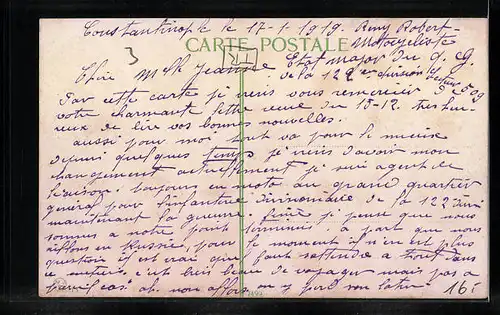 Constantinople le 17-1-1919. Remy Robert
Motocycliste
CARTE POSTALE
Etat Major du Q. G.
3
Chère Mlle Jeanne de la 122e division
Par cette carte je viens vous remercier de
votre charmante lettre venue du 15-12 très heu-
reux de lire vos bonnes nouvelles.
aussi pour moi tout va pour le mieux
depuis quelques temps je viens d'avoir mon
changement actuellement je suis agent de
liaison toujours en moto au grand quartier
général pour l'infanterie divisionnaire de la 122 divi
maintenant la guerre finie je pense que nous
sommes a notre point terminus. a part que nous
filions en Russie, pour le moment il n'en est plus
question il est vrai que faut s'attendre a tout dans
ce métier. c'est bien beau de voyager mais pas a
pareil cas. ah. non alors on y perd son latin.
16.